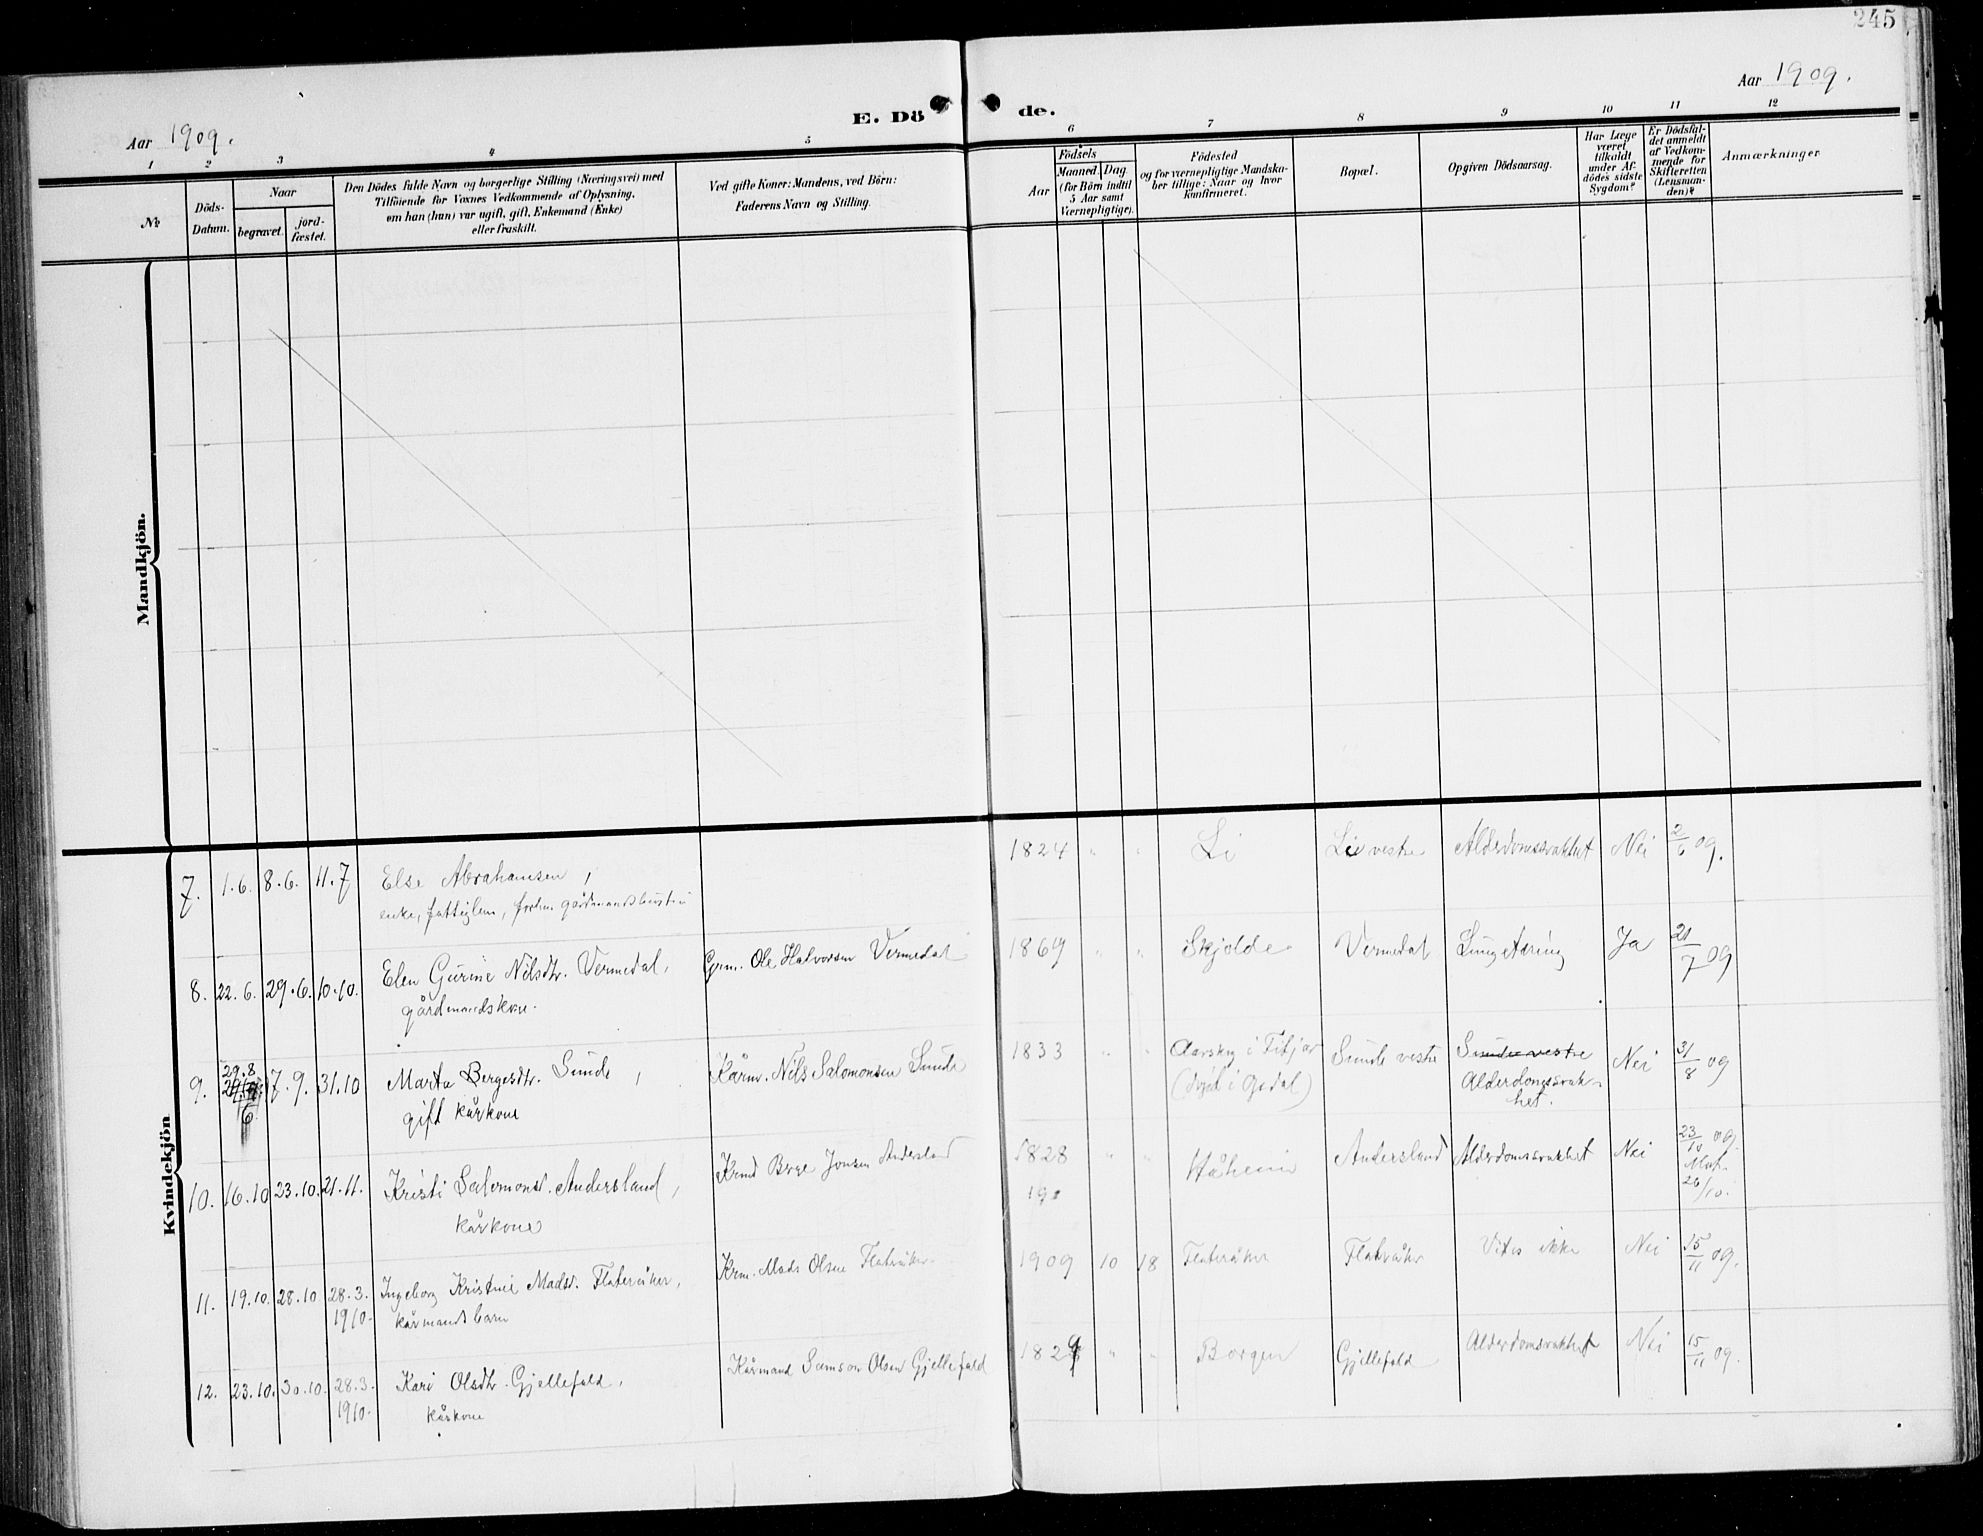 245
Aar 1909.
Aar 1909.
E. Dö de.
1 2 3 4 5 6 7 8 9 10 11 12
№
Döds-
Datum.
Naar
begravet.
jord-
fæstet.
Den Dödes fulde Navn og borgerlige Stilling (Næringsvei) med
Tilföiende for Voxnes Vedkommende af Oplysning,
om han (hun) var ugift, gift, Enkemand (Enke)
eller fraskilt.
Ved gifte Koner: Mandens, ved Börn:
Faderens Navn og Stilling.
Aar
Födsels
Maaned. Dag
(for Börn indtil
5 Aar samt
Værnepligtige).
Födested
og for værnepligtige Mandska-
ber tillige: Naar og hvor
konfirmeret.
Bopæl.
Opgiven Dödsaarsag.
Har Læge
været
tilkaldt
under Af-
dödes sidste
Sygdom?
Er Dödsfal-
det anmeldt
af Vedkom-
mende for
Skifteretten
(Lensman-
den)?
Anmærkninger
Mandkjön.
Kvindekjön
7. 1.6. 8.6. 11.7 Else Abrahamsen, 1824 " " Li Lie vestre Alderdomssvakhet Nei 2/6 09.
enke, fattiglem, gårdmandshustru
8. 22.6. 29.6. 10.10. Elen Gurine Nilsdtr. Vermedal, Grm. Ole Halvorsen Vermedal 1869 " " Skjolde Vermedal Ja 21/7 09
gårdmandskone.
9. 29.8 7.9. 31.10 Marta Bergesdtr. Sunde, Kårm. Nils Salomonsen Sunde 1833 " " i Fitjar Sunde vestre Sunde vestre Nei 31/8 09
6
gift kårkone
Alderdomssvak-
het.
10. 16.10 23.10. 21.11. Kristi Salomonsd. Andersland, Berge Jonsen Andersland 1828 " " Håheim Andersland Alderdomssvakhet Nei 23/10 09.
kårkone
26/10.
11. 19.10. 28.10 28.3. Ingeborg Kristine Madsd. Flateråker, Krm. Mads Olsen Flatråker 1909 10 18 Flateråker Flatråker Vites ikke Nei 15/11 09.
1910. kårmandsbarn
12. 23.10. 30.10. 28.3. Kari Olsdtr. Gjellefald, Kårmand Samson Olsen Gjellefald 1829 " " Borgen Gjellefald Alderdomsvakhet Nei 15/11 09.
1910. kårkone